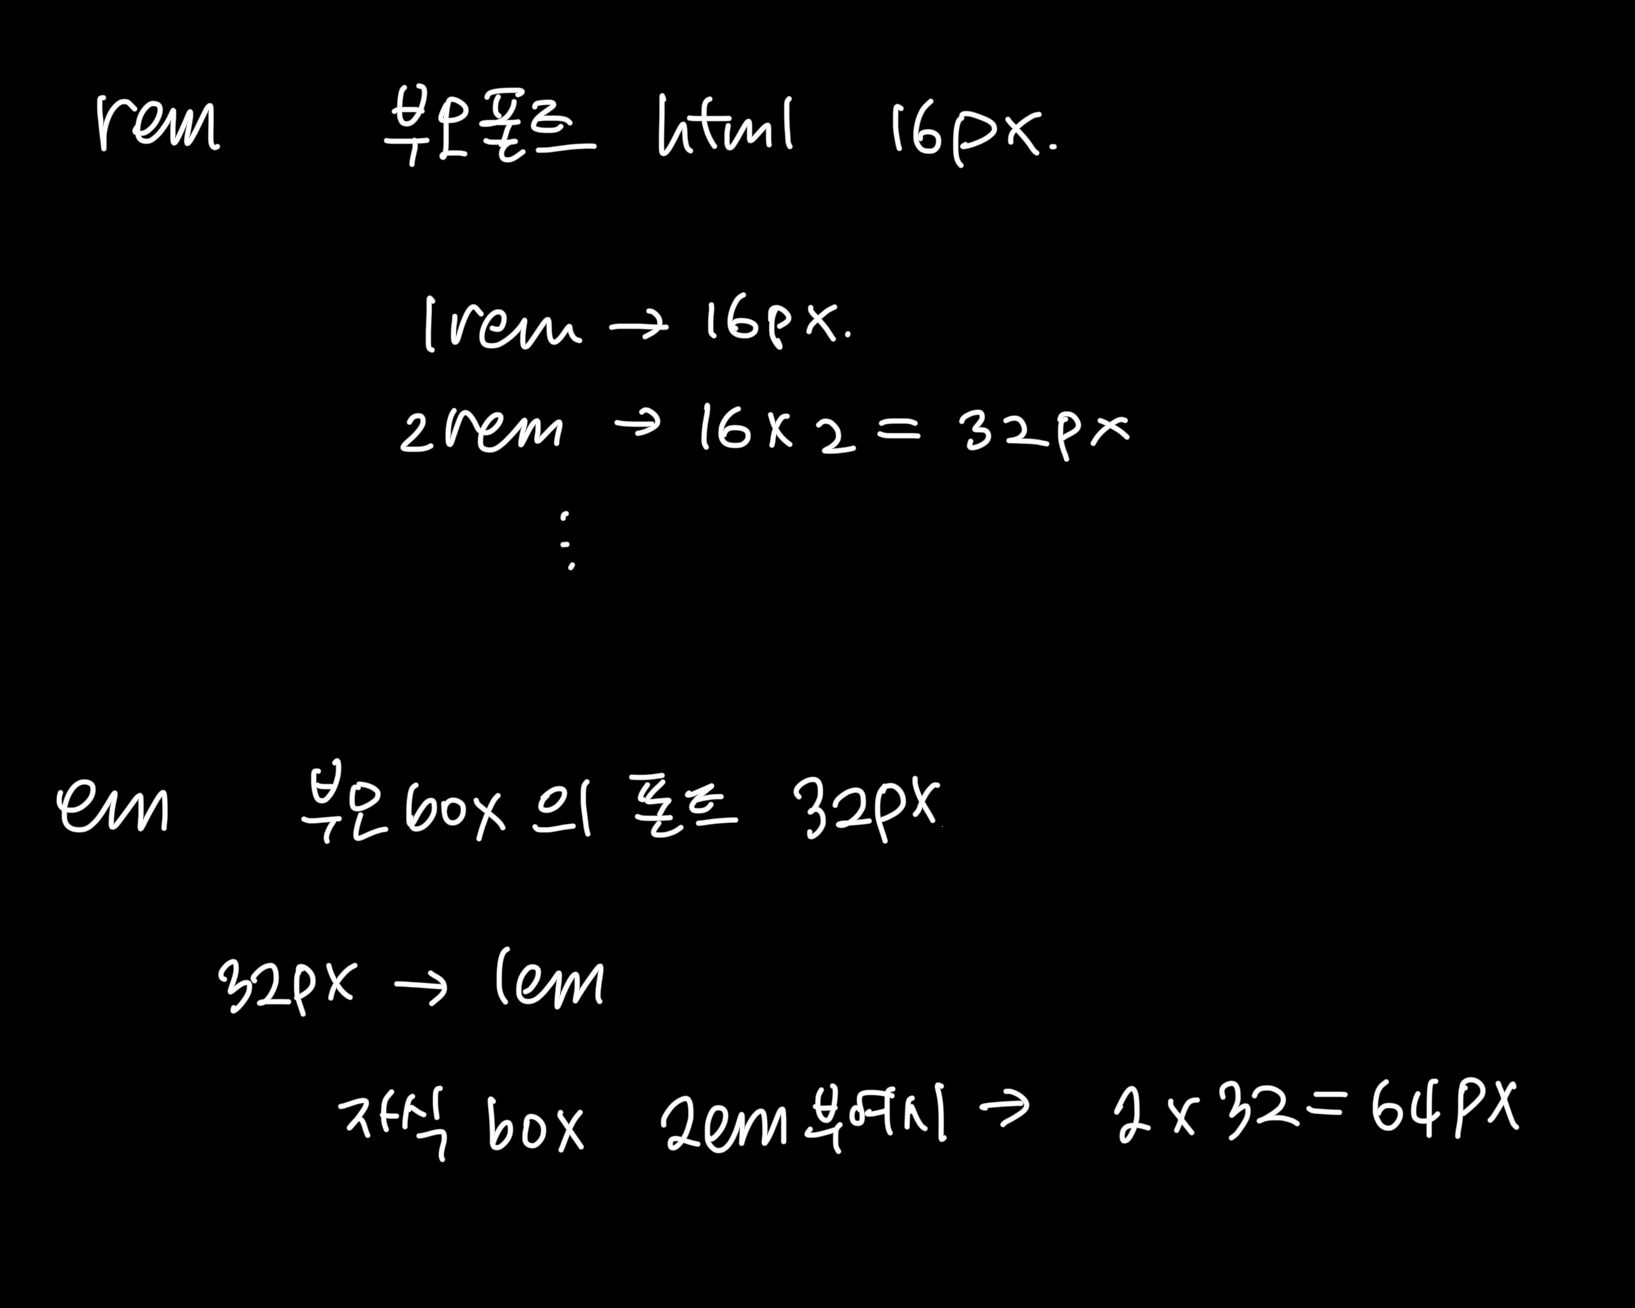 rem 부모폰트 html 16px.
1rem → 16px.
2rem → 16 x 2 = 32px
⋮
em 부모 box 의 폰트 32px
32px → 1em
자식 box 2em 부여시 → 2 x 32 = 64px